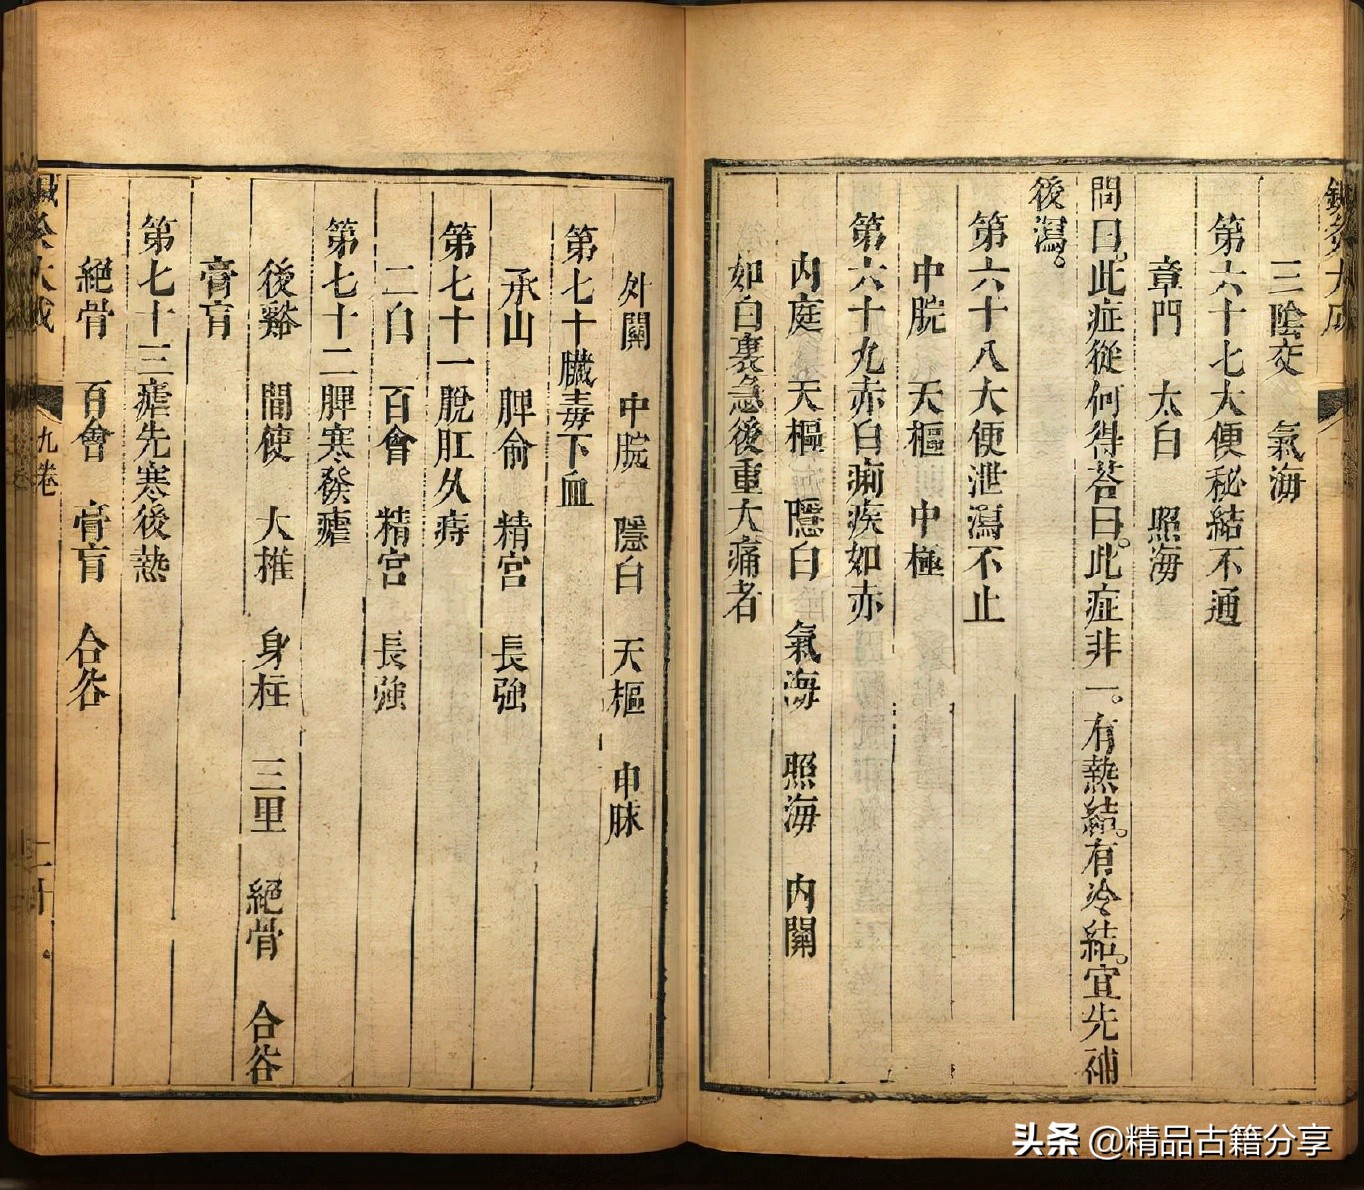 鍼灸大成
三陰交　氣海
第六十七大便秘結不通
章門　太白　照海
問曰。此症從何得荅曰。此症非一。有熱結。有冷結。宜先補
後瀉。
第六十八大便泄瀉不止
中脘　天樞　中極
第六十九赤白痢疾如赤
內庭　天樞　隱白　氣海　照海　內關
如白裏急後重大痛者
外關　中脘　隱白　天樞　申脉
第七十臟毒下血
承山　脾俞　精宮　長強
第七十一脫肛久痔
二白　百會　精宮　長強
第七十二脾寒發瘧
後谿　間使　大椎　身柱　三里　絕骨　合谷
膏肓
第七十三瘧先寒後熱
絕骨　百會　膏肓　合谷
鍼灸大成
九卷
头条 @精品古籍分享